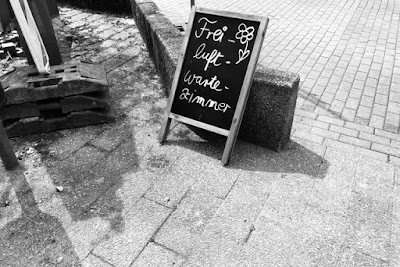 Frei-
luft-
Warte-
zimmer